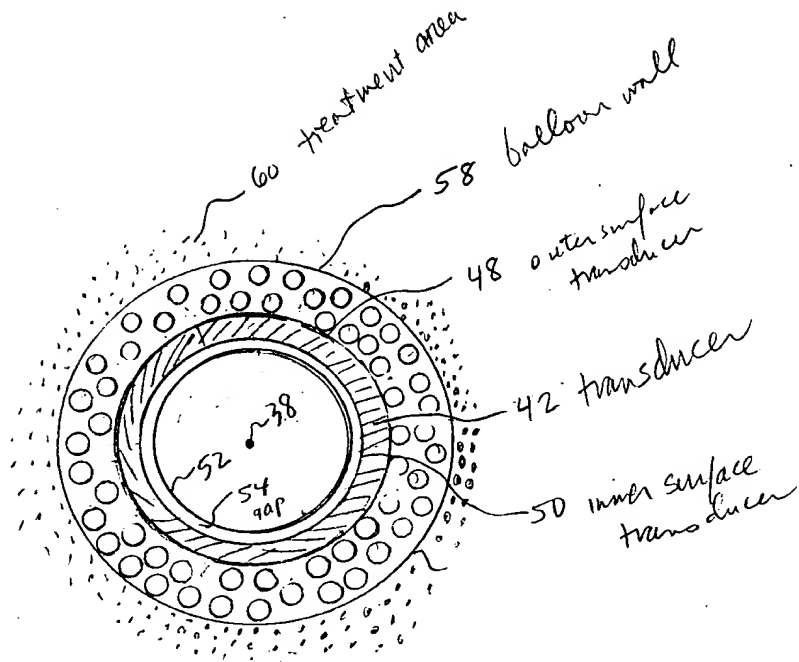 60 treatment area
58 balloon wall
48 outer surface
transducer
42 transducer
38
52
54
gap
50 inner surface
transducer